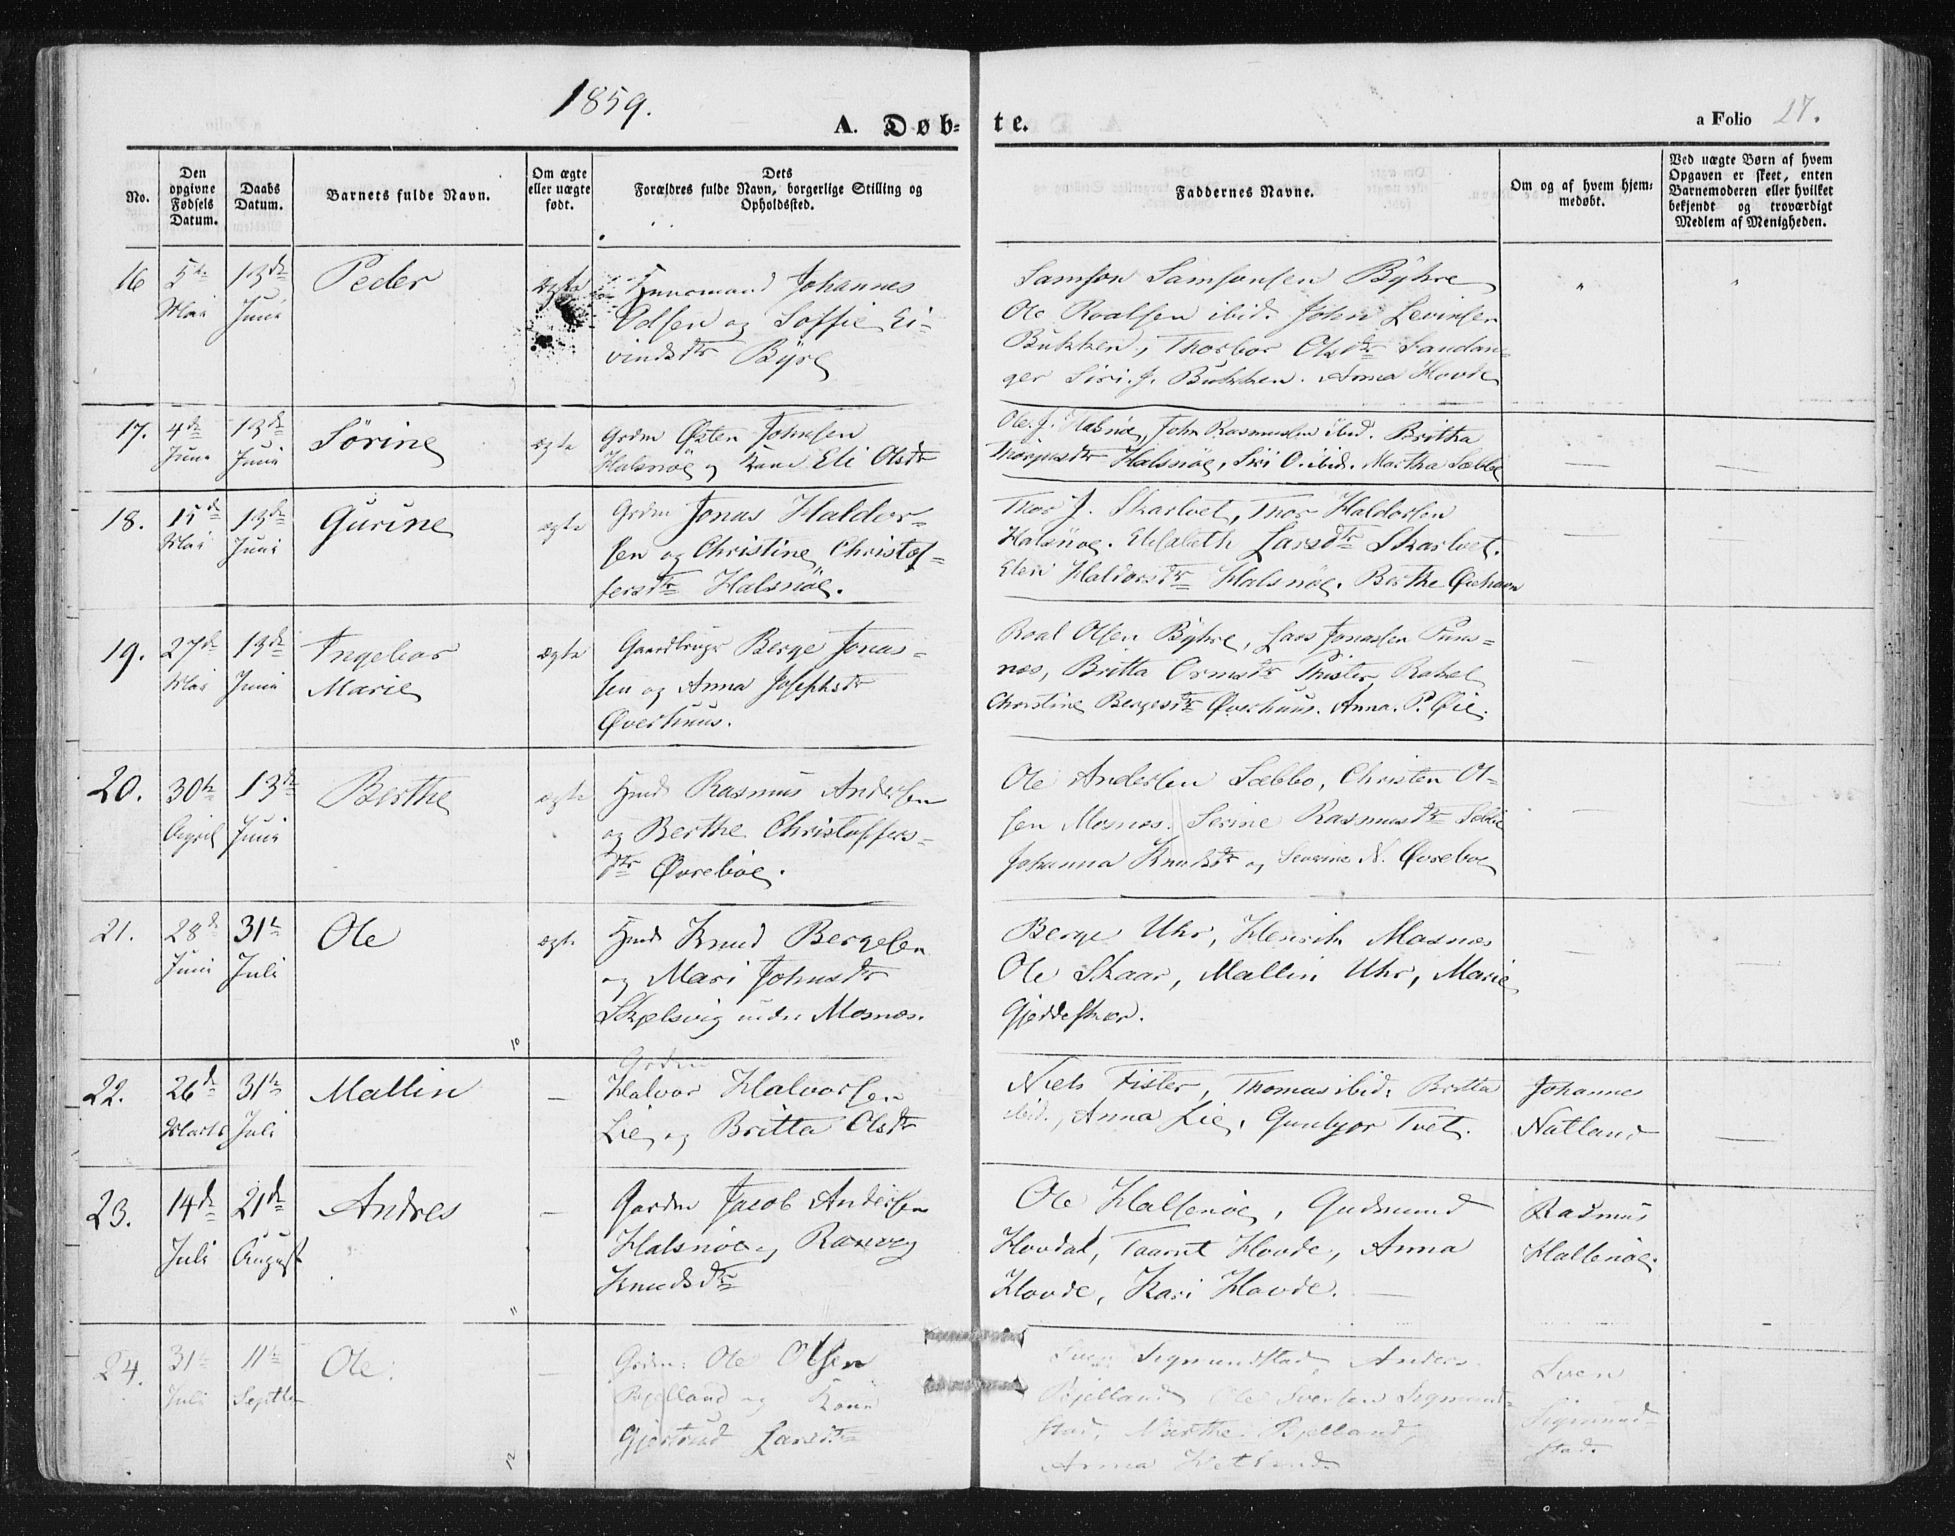 1859.
A. Døb- te.
a Folio 27.
No.
Den opgivne Fødsels Datum.
Daabs Datum.
Barnets fulde Navn.
Om ægte eller uægte født.
Dets Forældres fulde Navn, borgerlige Stilling og Opholdssted.
Faddernes Navne.
Om og af hvem hjemmedøbt.
Ved uægte Børn af hvem Opgaven er skeet, enten Barnemoderen eller hvilket bekjendt og troværdigt Medlem af Menigheden.
16
5te Mai
13de Juni
Peder
ægte
Johannes
og Soffie Ei-
vindsdtr Byre
Samson Samsonsen Byhre
Ole Roalsen ibid. John Levinsen
Bukken, Thorbor Olsdtr Sandan-
ger Siri J. Bukken. Anna Hovde
17.
4de Juni
13de Juni
Sørine
ægte
Grdm Østen Johnsen
Halsnøe og Kone Eli Olsdtr
Ole J. Halsnøe, John Rasmussen ibid. Britha
Halsnøe, Siri O. ibid. Martha Sæbbø
18.
15de Mai
13de Juni
Gurine
ægte
Grdm Jonas Haldor-
sen og Christine Christof-
fersdtr Halsnøe.
Thor J. Skartvet, Thor Haldorsen
Halsnøe. Elisabeth Larsdtr Skartvet.
Eleri Haldorsdtr Halsnøe. Berthe
19.
27de Mai
13de Juni
Ingebor
Marie
ægte
Gaardbruger Berge Jonas-
sen og Anna Josephsdtr
Øverhuus.
Roal Olsen Byhre, Lars Jonassen
nes, Britta Ormsdtr Fister, Rakel
Christine Bergesdtr Øverhuus. Anna P. Øie.
20.
30te April
13de Juni
Berthe
ægte
Hmd Rasmus Andersen
og Berthe Christoffers-
dtr Øvrebøe.
Ole Andersen Sæbbø, Christen Ol-
sen Mosnæs. Serine Rasmusdtr Sæbbø
Johanna Knudsdtr og Severine N. Øvrebøe
21.
28de Juni
31te Juli
Ole
ægte
Hmd Knud Bergesen
og Mari Johnsdtr
Skjelsvig under Mosnæs.
Berge Uhr, Henrik Mosnæs
Ole Skaar, Mallin Uhr, Marie
Gjeddeskær.
10
22.
26de Marts
31te Juli
Mallin
—
Grdm
Halvor Halvorsen
Lie og Britta Olsdtr
Niels Fister, Thomas ibid. Britta
ibid., Anna Lie, Gunbjor Tvet.
Johannes
Natland
23.
14de Juli
21de August
Andres
—
Gardm Jacob Andersen
Halsnøe og Ranveg
Knudsdtr
Ole Halsenøe, Gudmund
Hovdal, Taarut Hovde, Anna
Hovde, Kari Hovde.
Rasmus
Halsenøe.
11
24.
31te Juli
11te Septbr
Ole.
—
Grdm: Ole Olsen
Bjelland og Kone
Gjertrud Larsdtr
Sven Sigmundstad, Anders
Bjelland, Ole Svensen Sigmund-
stad, Marthe Bjelland,
Anna Hetland.
Sven
Sigmund-
stad.
12